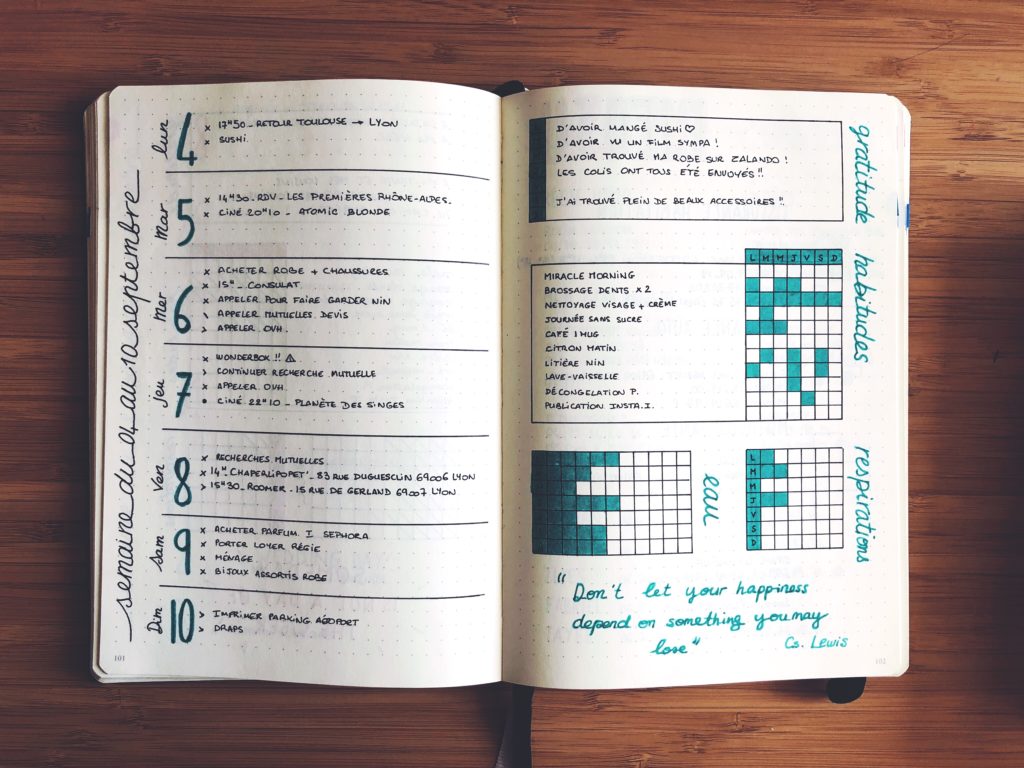 semaine du 04 au 10 septembre
lun 4
x 17H50_ RETOUR TOULOUSE → LYON
x SUSHI.
mar 5
x 14H30_RDV_ LES PREMIÈRES RHÔNE-ALPES.
x CINÉ 20H10 _ ATOMIC BLONDE
mer 6
x ACHETER ROBE + CHAUSSURES
x 15H_ CONSULAT.
x APPELER POUR FAIRE GARDER NIN
> APPELER MUTUELLES DEVIS
> APPELER OVH.
jeu 7
x WONDERBOX !! ⚠
> CONTINUER RECHERCHE MUTUELLE
x APPELER OVH.
• CINÉ 22H10 _ PLANÈTE DES SINGES
ven 8
x RECHERCHES MUTUELLES.
x 14H_ CHAPERLIPOPET'_ 83 RUE DUGUESCLIN 69006 LYON
> 15H30_ ROOMER_ 15 RUE DE GERLAND 69007 LYON
sam 9
x ACHETER PARFUM I SEPHORA
x PORTER LOYER RÉGIE
x MÉNAGE
x BIJOUX ASSORTIS ROBE
Dim 10
> IMPRIMER PARKING AÉOPORT
> DRAPS
101
gratitude
D'AVOIR MANGÉ SUSHI ♡
D'AVOIR VU UN FILM SYMPA !
D'AVOIR TROUVÉ MA ROBE SUR ZALANDO !
LES COLIS ONT TOUS ÉTÉ ENVOYÉS !!
J'AI TROUVÉ PLEIN DE BEAUX ACCESSOIRES !!
habitudes
L M M J V S D
MIRACLE MORNING
BROSSAGE DENTS x2
NETTOYAGE VISAGE + CRÈME
JOURNÉE SANS SUCRE
CAFÉ 1 MUG
CITRON MATIN
LITIÈRE NIN
LAVE-VAISSELLE
DÉCONGELATION P.
PUBLICATION INSTA.I.
eau
respirations
L
M
M
J
V
S
D
"Don't let your happiness
depend on something you may
lose"
Cs. Lewis
102